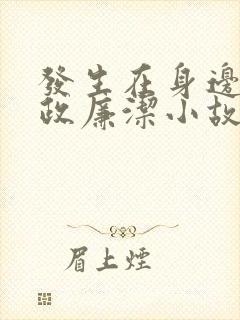 發生在身邊
政廉潔小故
眉上煙